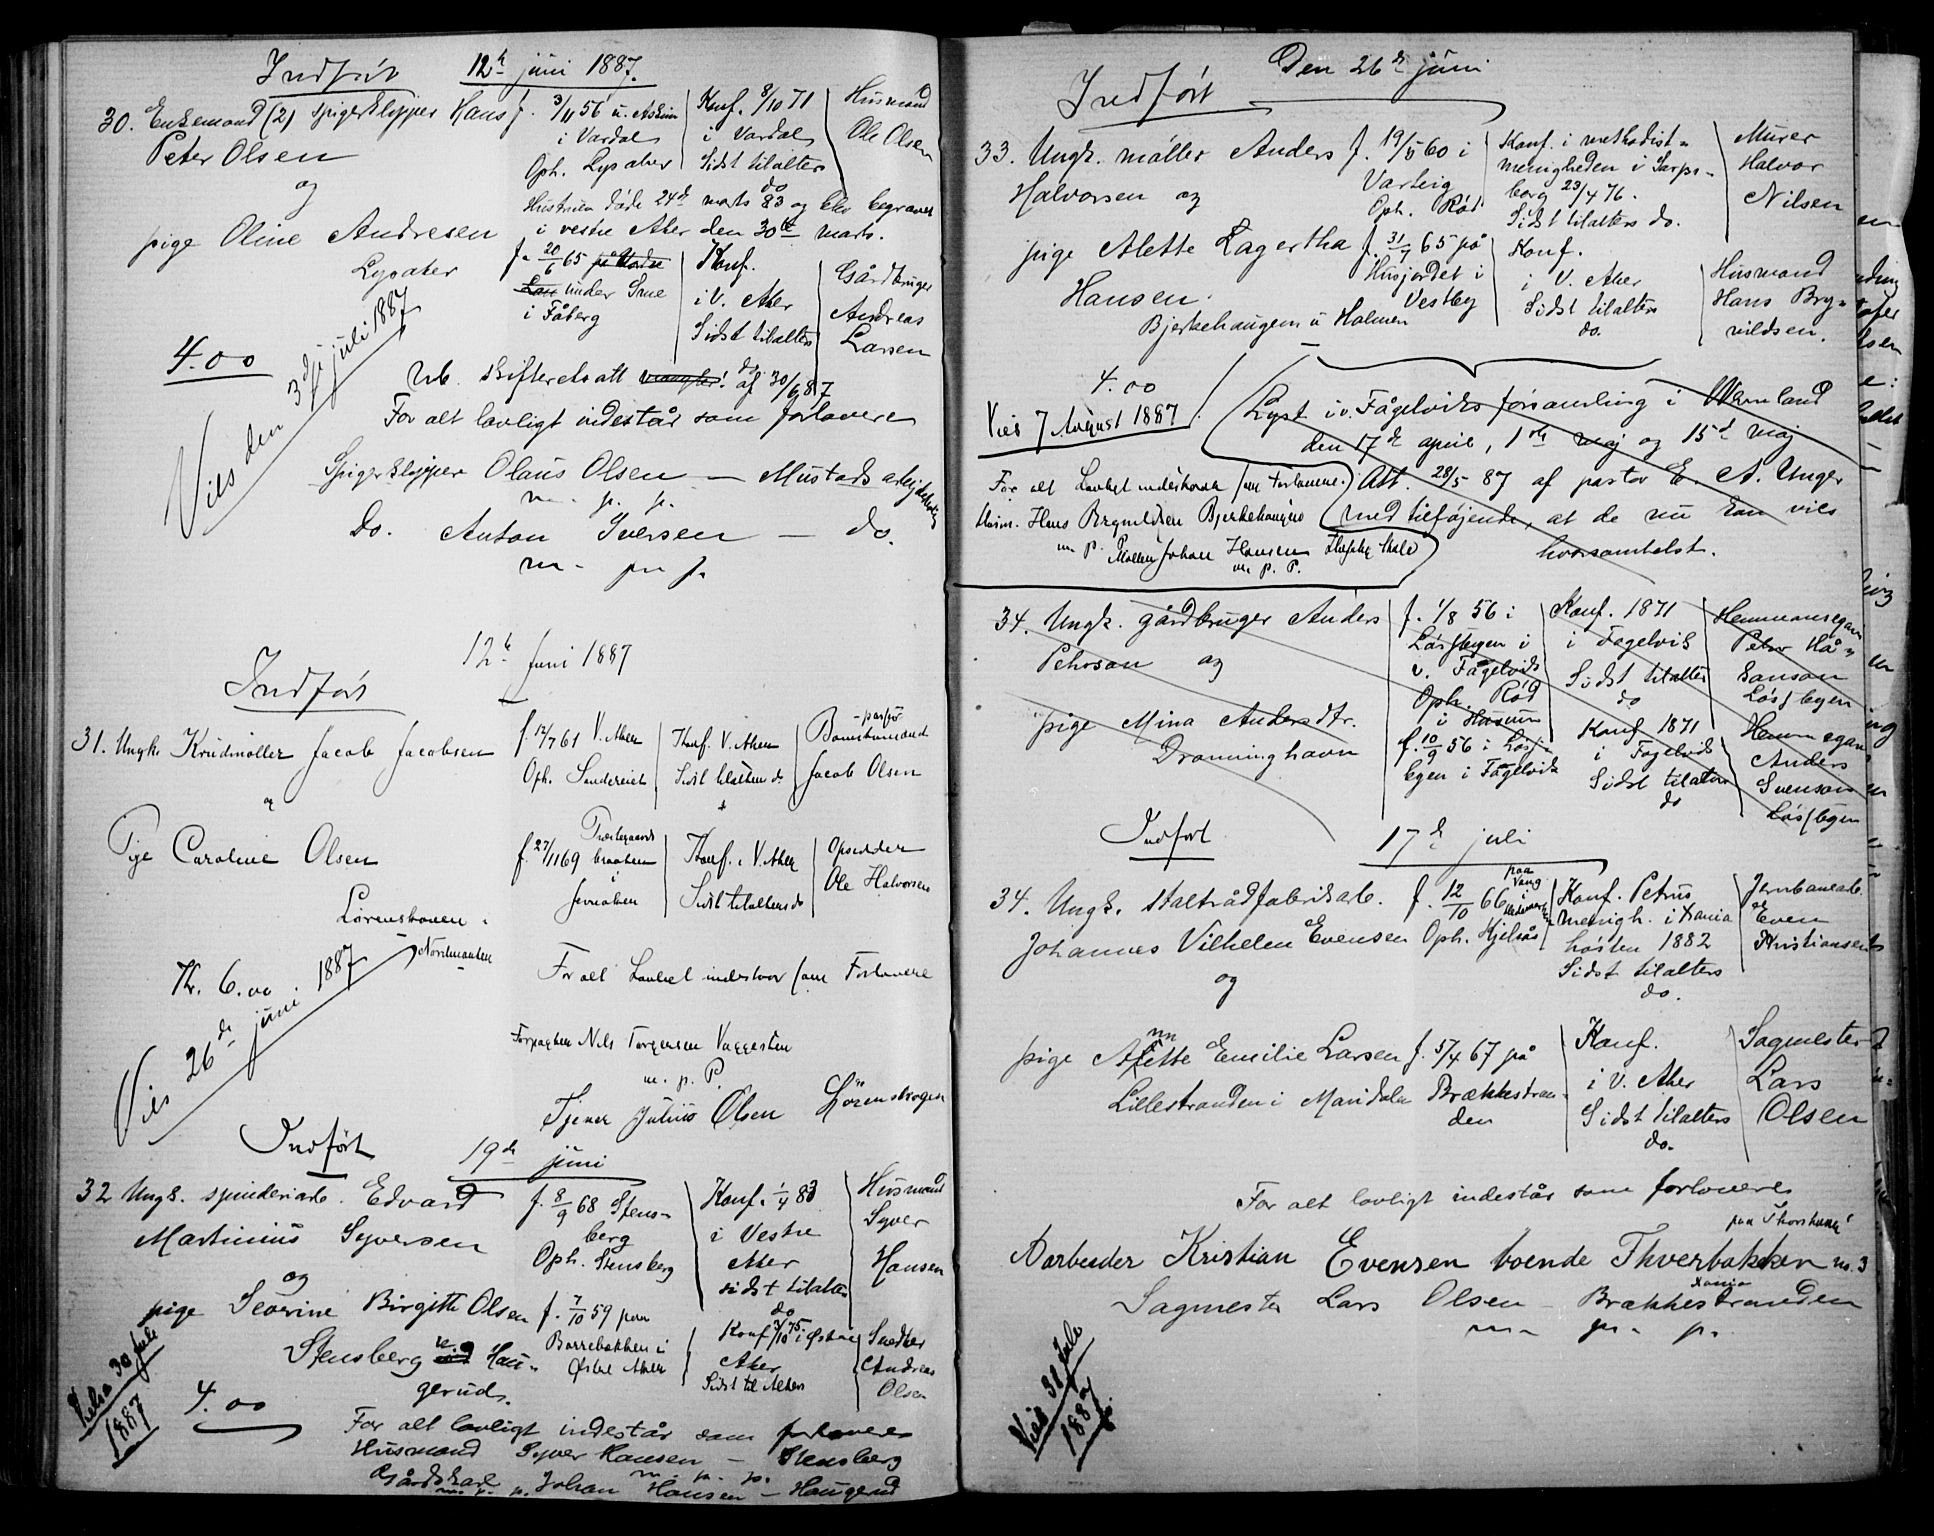 Indført 12te juni 1887.
30. Enkemand (2) spigerklipper Hans
Peter Olsen
og
pige Oline Andresen
Lysaker
f. 3/11 56 u. Askim
i Vardal
Oph. Lysaker
Konf. 8/10 71
i Vardal
Sidst tilalters
do
Husmand
Ole Olsen
Hustruen døde 24de marts 83 og blev begravet
i vestre Aker den 30te marts.
f. 20/6 65 på
under Srue
i Fåberg
Konf.
i V. Aker
Sidst tilalters
do
Gårdbruger
Andreas
Larsen
4.00
Vies den 3die juli 1887
Nb. skifteretsatt af 30/6 87
For alt lovligt indestår som forlovere
Spigerklipper Olaus Olsen — Mustads
m. p. p.
do. Anton Iversen — do.
m. p. p.
12te Juni 1887
Indført
31. Ungk. Krudmøller Jacob Jacobsen
og
Pige Caroline Olsen
Lørenskoven
f. 12/7 61 V. Aker
Oph. Sondereiet
Konf. V. Aker
Sidst tilalters do
Jacob Olsen
f. 27/11 69
Konf. i V. Aker
Sidst tilalters do
Opsidder
Ole Halvorsen
Kr. 6.00
Vies 26de juni 1887
Nordmarken
For alt Lovligt indestaar som Forlovere
Forpagter Nils Torgersen Vaggesten
m. p. P.
Tjener Julius Olsen Lörenskogen
Indført
19de juni
32 Ungk. spinderiarb. Edvard
Martinius Syversen
og
pige Severine Birgitte Olsen
Stensberg n. Hau-
gerud.
f. 8/9 68 Stens-
berg
Oph. Stensberg
Konf. 1/4 83
i Vestre
Aker
sidst tilalters
do
Husmand
Syver
Hansen
f. 7/10 59 paa
Barrebakken i
Østre Aker
Konf. 3/10 75. i Østre
Aker
Sidst til Alters
Snedker
Andreas
Olsen
Viet 30 juli
1887
4.00
For alt lovligt indestår som forlovere
Husmand Syver Hansen — Stensberg
m. p. p.
Gårdskarl Johan Hansen — Haugerud
m. p. p.
Den 26de juni
Indført
33. Ungk. møller Anders
Halvorsen og
pige Alette Lagertha
Hansen.
Bjerkehaugen u Holmen
f. 19/5 60 i
Varteig
Oph. Rød
Konf. i methodist-
menigheden i Sarps-
borg 23/4 76.
Sidst tilalters do.
Murer
Halvor
Nilsen
f. 31/7 65 på
Husjordet i
Vestby
Konf.
i V. Aker
Sidst tilalters
do.
Husmand
Hans Bry-
nildsen.
4.00
Vies 7 August 1887
Lyst i v. Fågelviks församling i Wermland
den 17de april, 1ste maj og 15de maj
Att. 28/5 87 af pastor E. A. Unger
med tilføjende, at de nu kan vies
hvorsomhelst.
For alt Lovligt indestaaer som Forlovere.
Husm. Hans Brynildsen Bjerkehaugen
m P. Møller Johan Hansen
m. p. P.
34. Ungk. gårdbruger Anders
Pehrson og
pige Mina Andersdtr.
Dronninghavn
f. 1/8 56 i
Løssbyen i
v. Fågelvik
Oph. Rød
i Husum
Konf. 1871
i Fogelvik
Sidst tilalters
do
Hemmansegare
Pehr Hå-
kanson
Løssbyen
f. 10/9 56 i Løss-
byen i Fågelvik
Konf 1871
i Fogelvik
Sidst tilalters
do
Hemmsegare
Anders
Svenson
Løssbyen
Indført 17de juli
34. Ungk. staltrådfabrikarb.
Johannes Vilhelm Evensen
og
pige Anette Emilie Larsen
Lillestranden i Maridalen
f. 12/10 66 paa Vang
Oph. Kjelsås
Konf. Petrus
menigh. i Xania
høsten 1882
Sidst tilalters
do.
Jernbanearb.
Even
Kristiansen
f. 5/4 67 på
Brækkestran-
den
Konf.
i V. Aker
Sidst tilalters
do.
Sagmester
Lars
Olsen
For alt lovligt indestår som forlovere
Aarbeider Kristian Evensen boende Thverbakken no. 3
Xania
Sagmester Lars Olsen — Brækkestranden
m. p. p.
Viet 31 Juli
1887